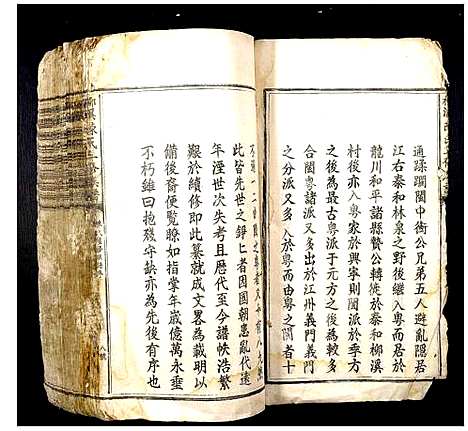 通蹂躙閩中衛公兄弟五人避亂隱居
江右泰和林泉之野後繼入粵而居於
龍川和平諸縣贊公轉徙於泰和柳溪
村後亦入粵家於興寧則閩派於季方
之後為最古粵派於元方之後為較多
合閩粵諸派又多出於江州義門義門
之分派又多入於粵而由粵之閩者十
此皆先世之錚仁者因國朝患亂代遠
年湮世次失考且歷代至今譜帙浩繁
艱於續修即此纂就成文略為載明以
備後裔便覽瞭如指掌年歲億萬永垂
不朽雖曰抱殘守缺亦為先後有序也